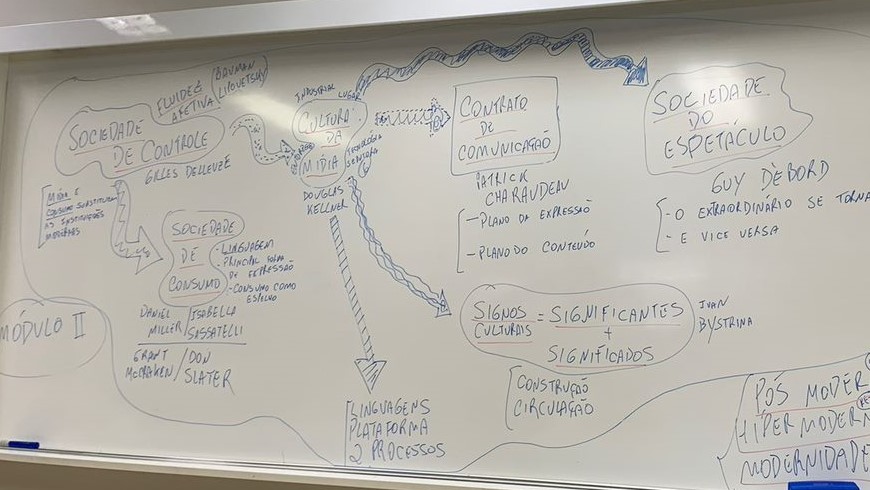 FLUIDEZ
AFETIVA
BAUMAN
LIPOVETSKY
SOCIEDADE
DE CONTROLE
GILLES DELLEUZE
MÍDIA E
CONSUMO SUBSTITUEM
AS INSTITUIÇÕES
SOCIEDADE
DE
CONSUMO
- LINGUAGEM
- PRINCIPAL FORMA
DE EXPRESSÃO
- CONSUMO COMO
ESPELHO
DANIEL
MILLER/
ISABELLA
SASSATELLI
GRANT
McCRAKEN/
DON
SLATER
MÓDULO II
INDUSTRIAL
LUGAR
CULTURA
DA
MÍDIA
TECNOLOGIA
DOUGLAS
KELLNER
LINGUAGENS
PLATAFORMA
2 PROCESSOS
CONTRATO
DE
COMUNICAÇÃO
PATRICK
CHARAUDEAU
- PLANO DA EXPRESSÃO
- PLANO DO CONTEÚDO
SIGNOS
CULTURAIS
= SIGNIFICANTES
+
SIGNIFICADOS
IVAN
BYSTRINA
CONSTRUÇÃO
CIRCULAÇÃO
SOCIEDADE
DO
ESPETÁCULO
GUY DEBORD
- O EXTRAORDINÁRIO SE TORNA
- E VICE VERSA
PÓS MODER
HÍPER MODERN
MODERNIDADE